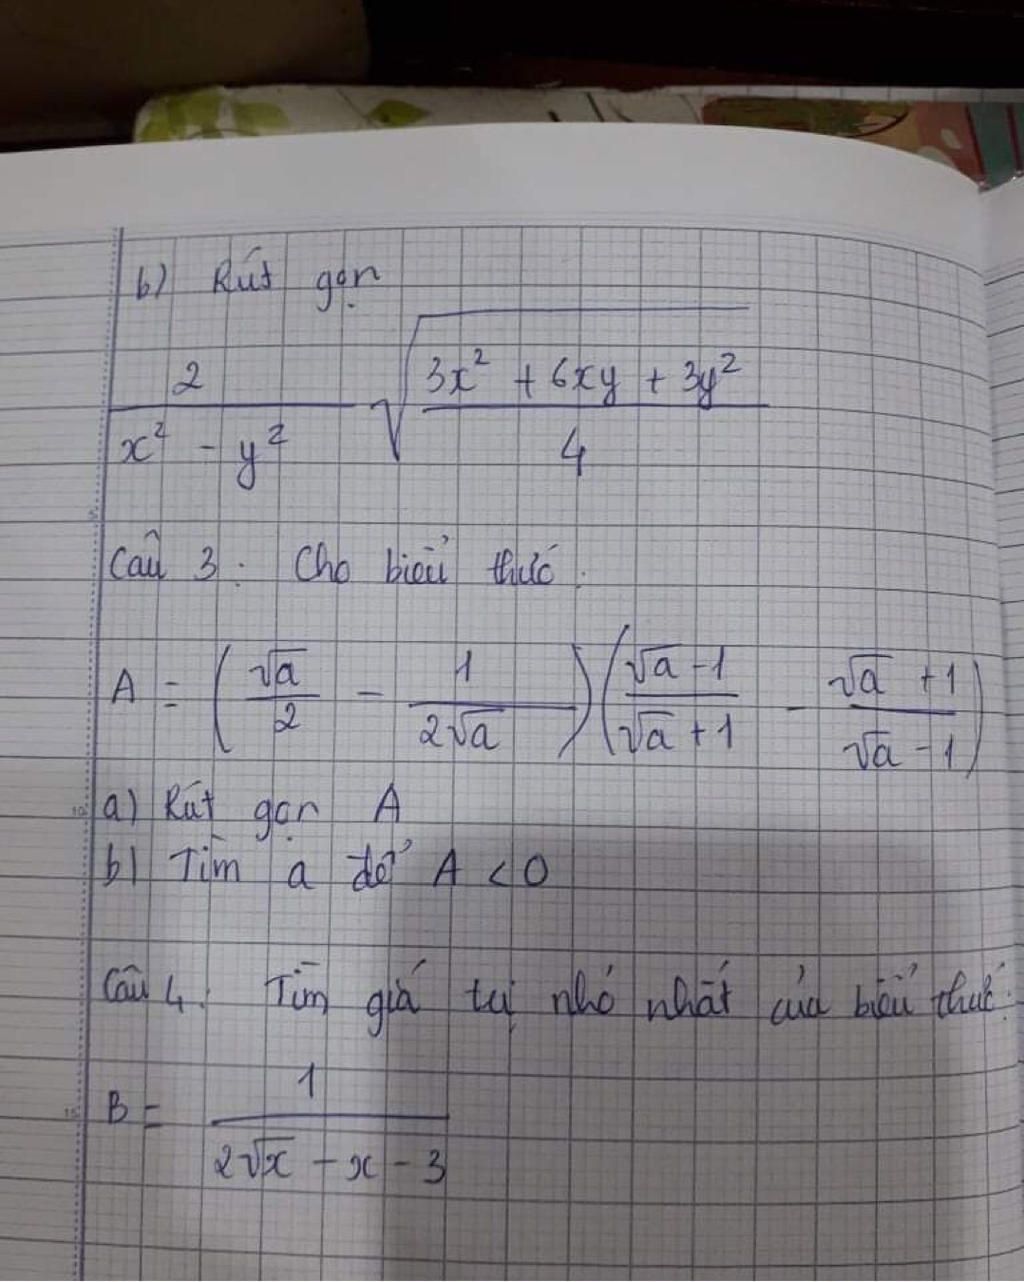 b) Rút gọn
2/(x² - y²) √((3x² + 6xy + 3y²)/4)
Câu 3: Cho biểu thức:
A = (√a/2 - 1/(2√a))((√a - 1)/(√a + 1) - (√a + 1)/(√a - 1))
a) Rút gọn A
b) Tìm a để A < 0
Câu 4: Tìm giá trị nhỏ nhất của biểu thức:
B = 1/(2√x - x - 3)